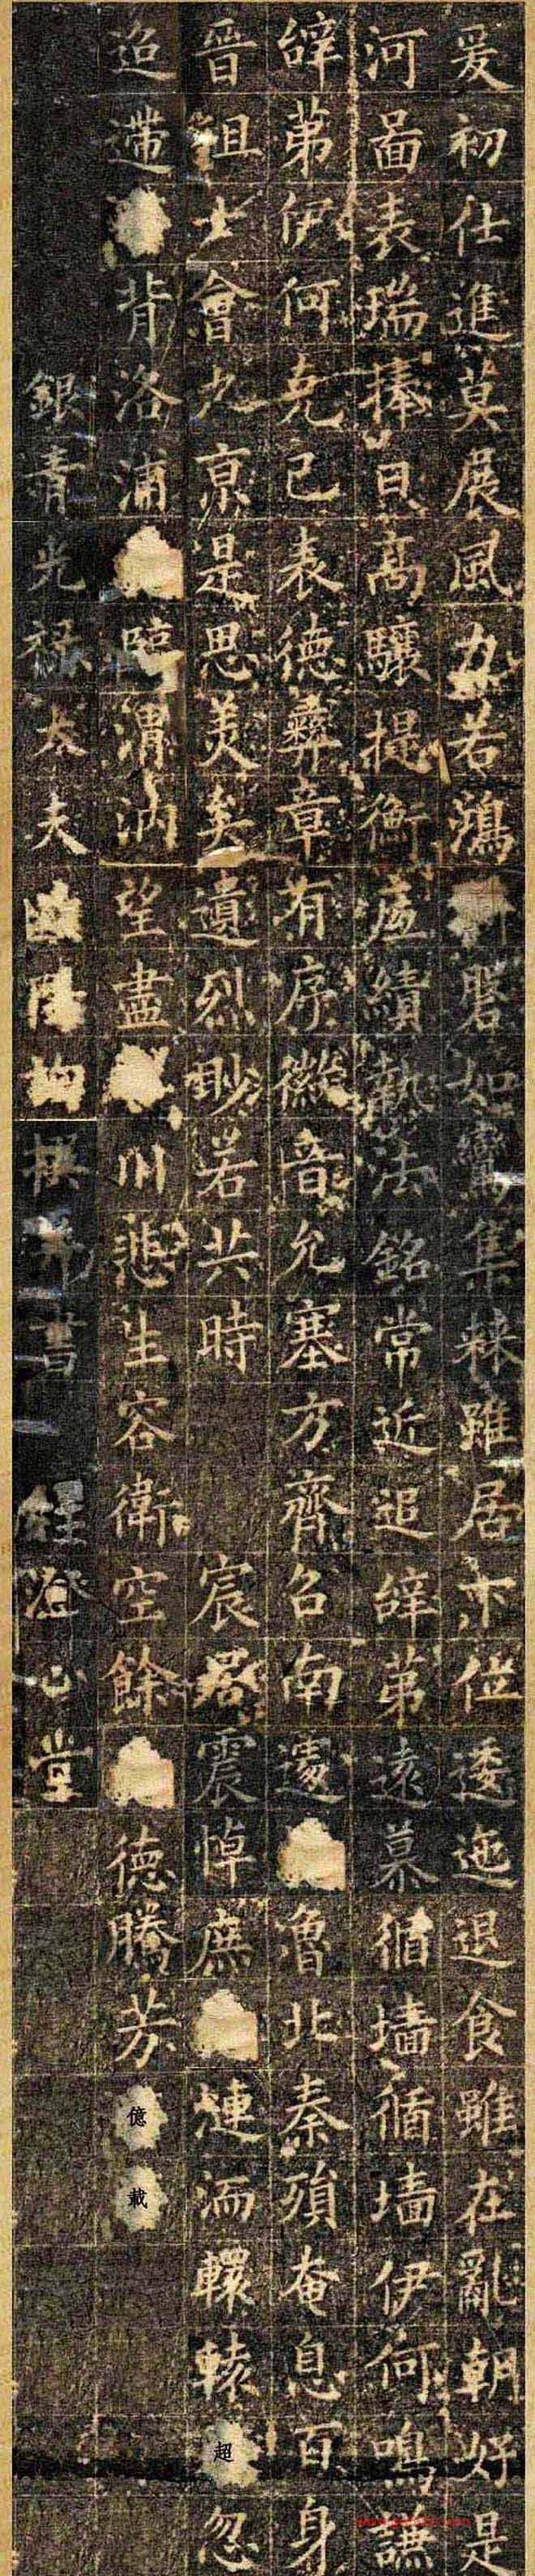 爰初仕進莫展風力若鴻磐如鸞集棘雖居下位逶迤退食雖在亂朝好是
河啚表瑞捧日高驤提衡庶績執法銘常近追辥弟遠慕循墻循墻伊何鳴謙
辥弟伊何克己表德彝章有序徽音允塞方齊召南遽魯北秦殞奄息百身
晉徂士會九京是思美矣遺烈眇若共時宸居震悼庶漣洏轘轅超忽
迢遰背洛浦臨渭汭望盡川悲生容衛空餘德騰芳億載
銀青光祿大夫歐陽詢撰并書澄心堂